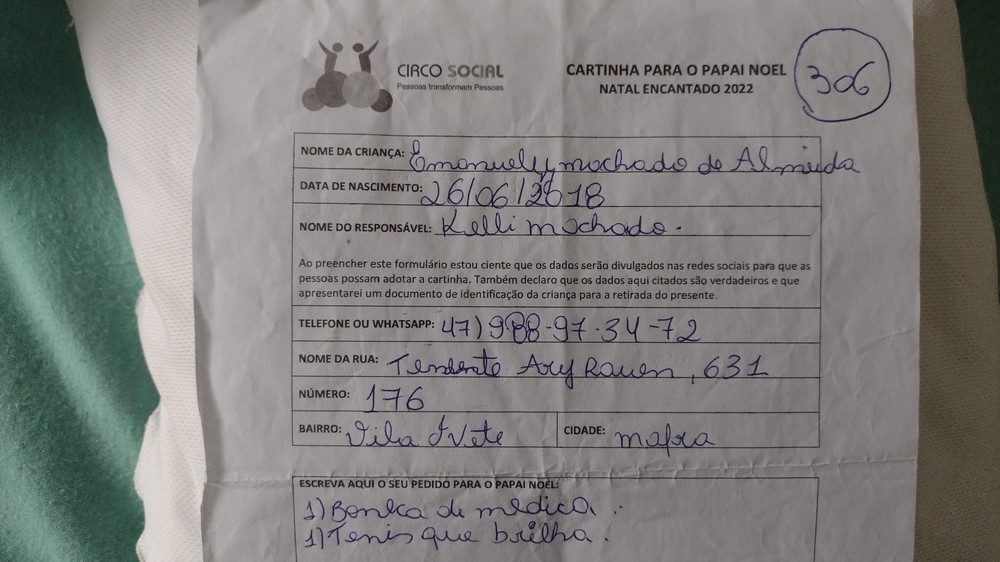 CIRCO SOCIAL
Pessoas transformam Pessoas
CARTINHA PARA O PAPAI NOEL
NATAL ENCANTADO 2022
306
NOME DA CRIANÇA: Emanuelly machado de Almeida
DATA DE NASCIMENTO: 26/06/2018
NOME DO RESPONSÁVEL: Kelli machado.
Ao preencher este formulário estou ciente que os dados serão divulgados nas redes sociais para que as
pessoas possam adotar a cartinha. Também declaro que os dados aqui citados são verdadeiros e que
apresentarei um documento de identificação da criança para a retirada do presente.
TELEFONE OU WHATSAPP: 47)988-97-34-72
NOME DA RUA: Tendente Ary Rauen, 631
NÚMERO: 176
BAIRRO: Vila Ivete CIDADE: mafra
ESCREVA AQUI O SEU PEDIDO PARA O PAPAI NOEL:
1) Boneca de médica.
1) Tenis que brilha.